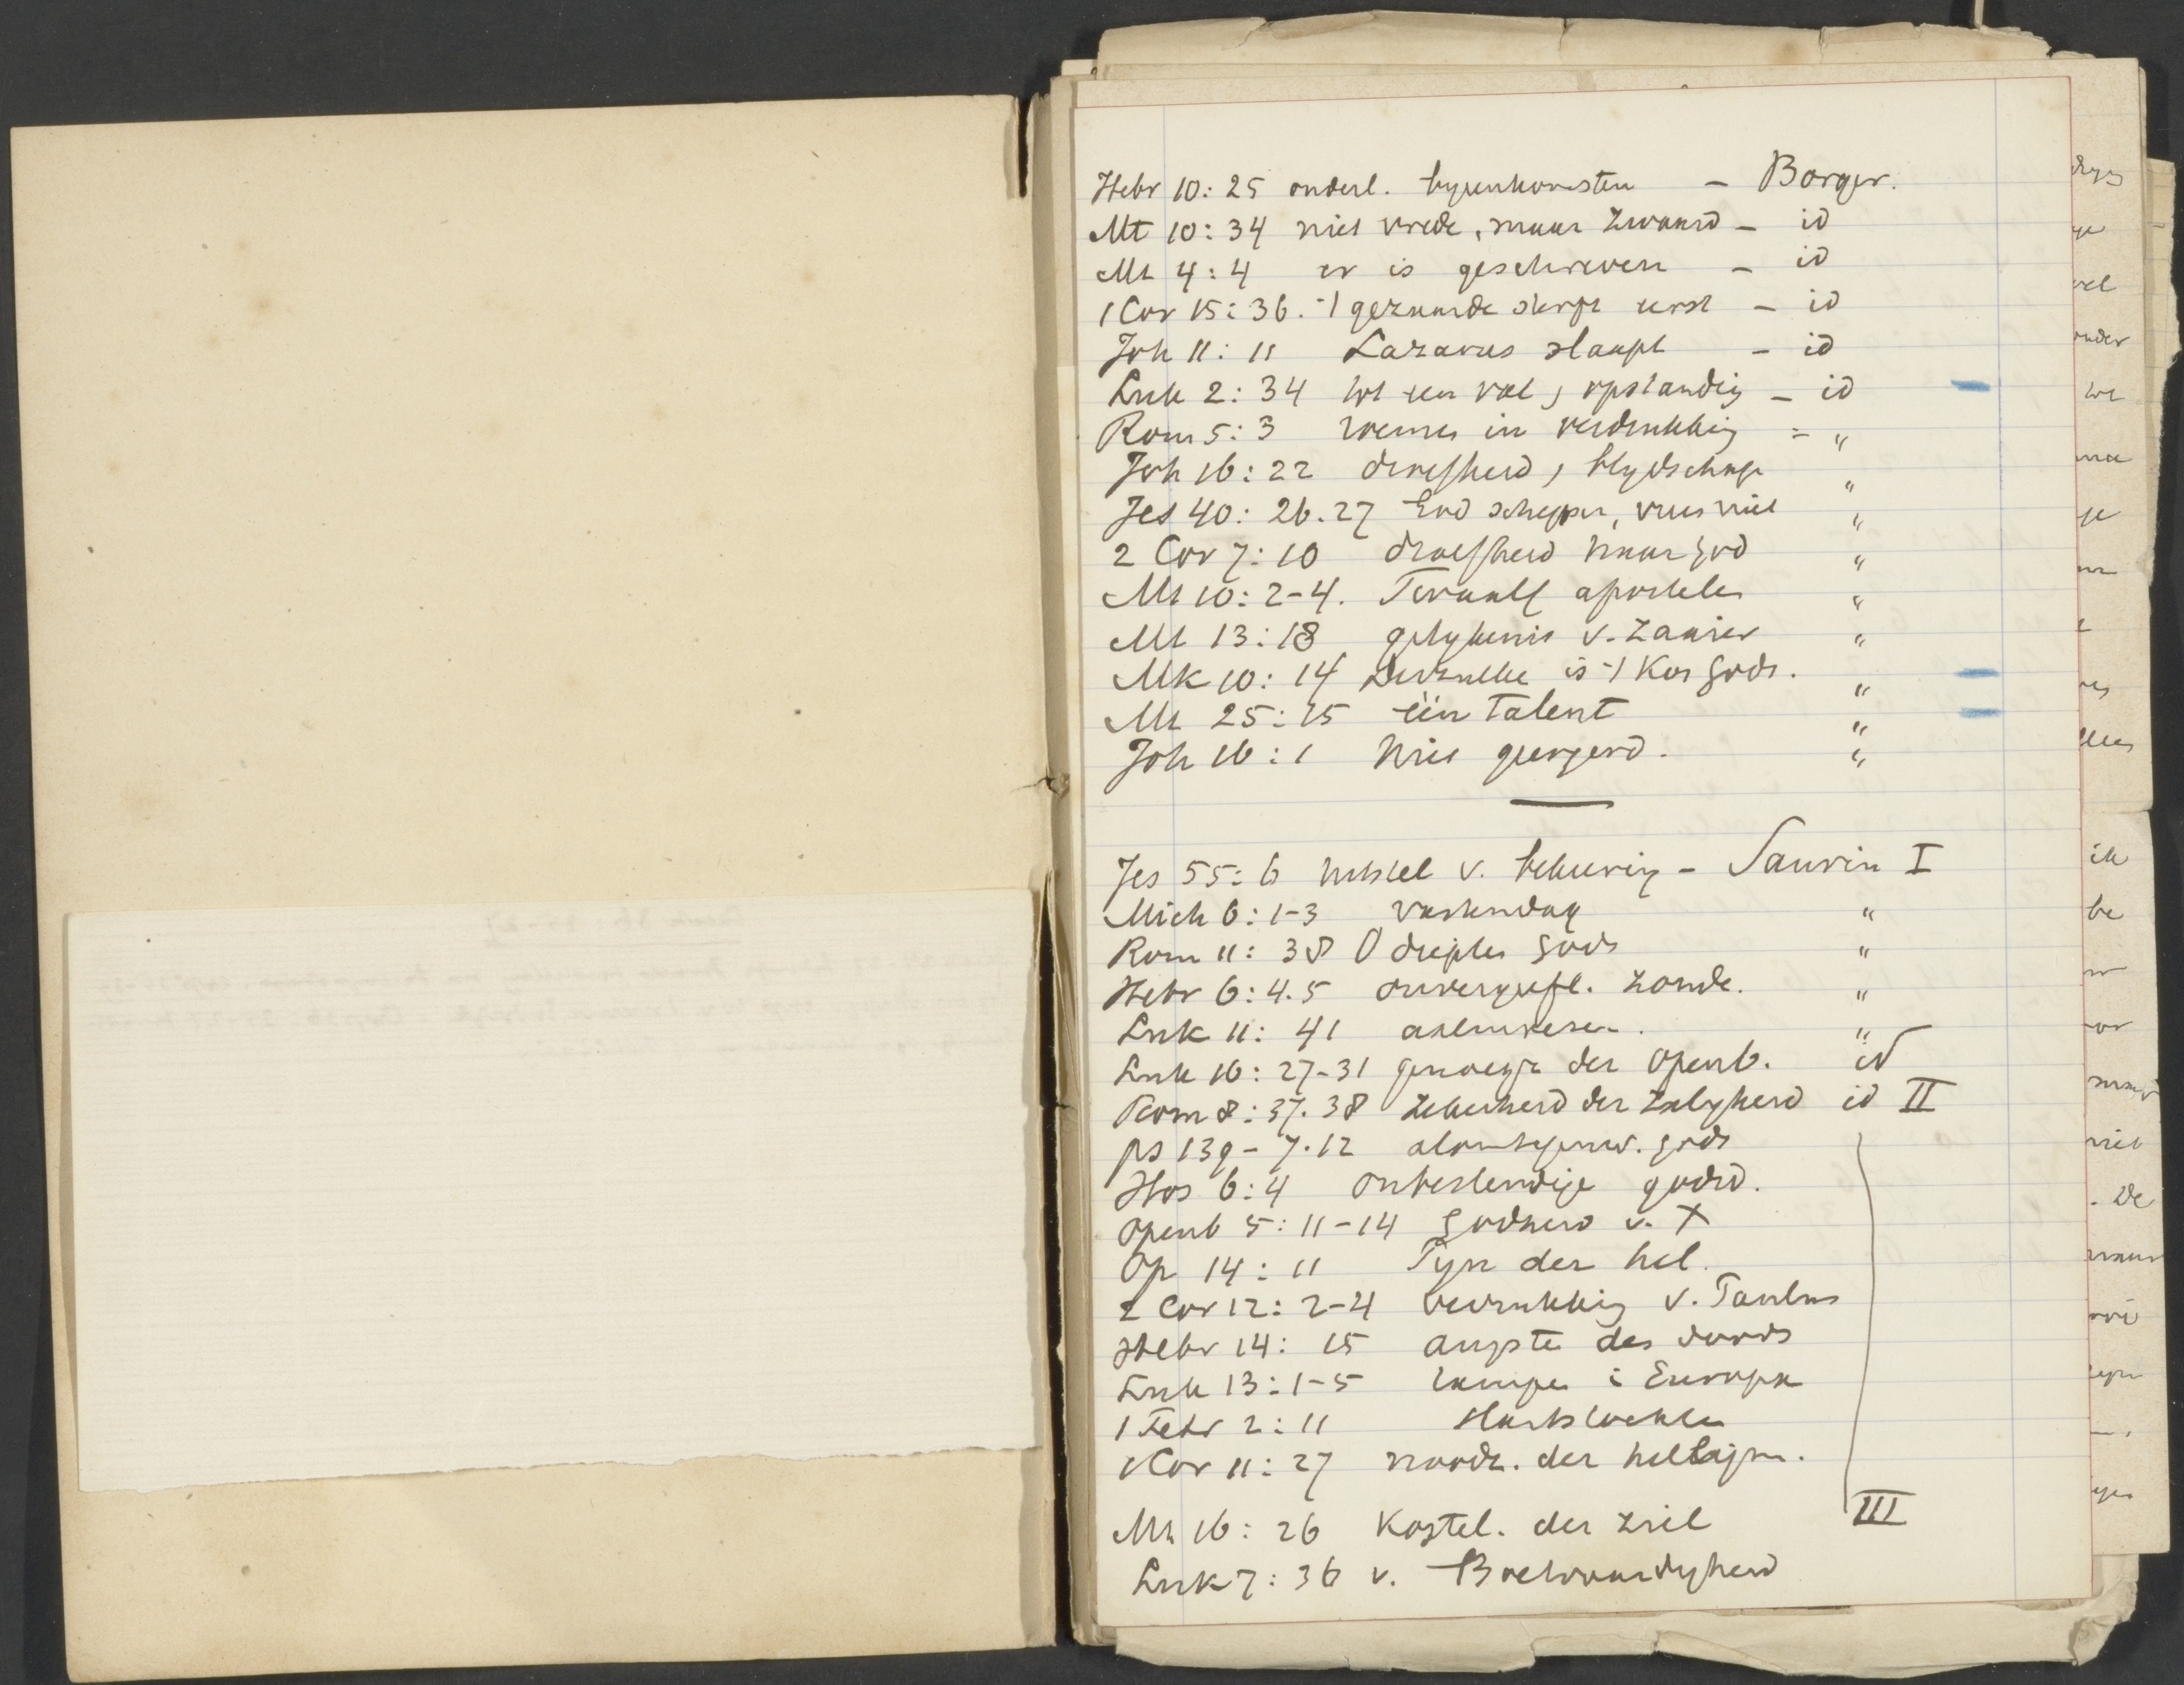 Hebr 10:25 onderl. byeenkomsten – Borger.
Mt 10:34 niet vrede, maar zwaard – id
Mt 4:4 er is geschreven – id
1 Cor 15:36. 't gezaaide sterft eerst – id
Joh 11:11 Lazarus slaapt – id
Luk 2:34 tot een val, opstanding – id
Rom 5:3 roemen in verdrukking = "
Joh 16:22 droefheid, blydschap "
Jes 40:26.27 God schepper, vrees niet "
2 Cor 7:10 droefheid naar God "
Mt 10:2-4. Twaalf apostelen "
Mt 13:18 gelykenis v. zaaier "
Mk 10:14 Derzulke is 't Kon Gods. "
Mt 25:15 één talent "
Joh 16:1 Niet geergerd. "
Jes 55:6 uitstel v. bekeering – Saurin I
Mich 6:1-3 vastendag "
Rom 11:38 O diepte Gods "
Hebr 6:4.5 onvergeefl. zonde. "
Luk 11:41 aalmoesen. "
Luk 16:27-31 genoegz. der Openb. id
Rom 8:37.38 zekerheid der zalygheid id II
ps 139-7.12 alomtegenw. Gods
Hos 6:4 onbestendige godsd.
Openb 5:11-14 Godheid v. X
Op 14:11 Pyn der hel.
2 Cor 12:2-4 verrukking v. Paulus
Hebr 14:15 angste des doods
Luk 13:1-5 rampen i Europa
1 Petr 2:11 Hartstochten
1 Cor 11:27 noodz. der
Mt 16:26 Kostel. der ziel
Luk 7:36 v. Boetvaardigheid